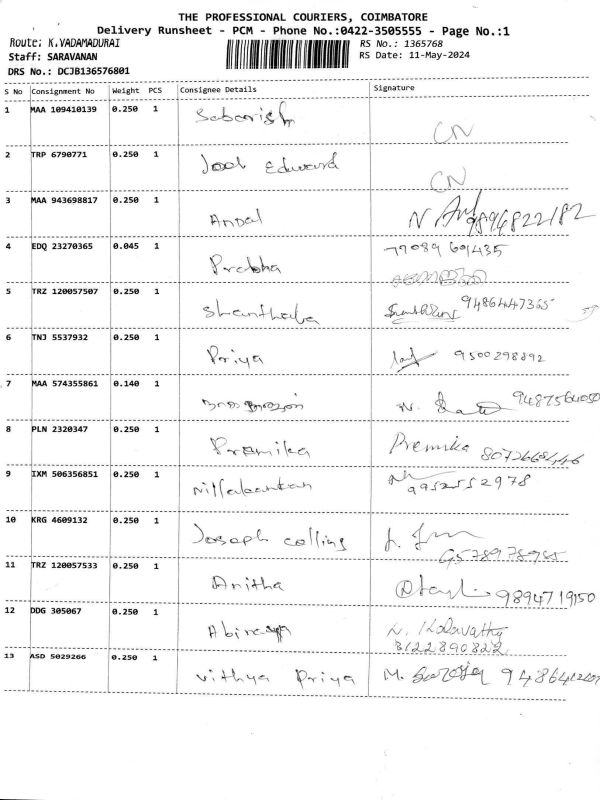 THE PROFESSIONAL COURIERS, COIMBATORE
Delivery Runsheet - PCM - Phone No.:0422-3505555 - Page No.:1
Route: K.VADAMADURAI
RS No.: 1365768
Staff: SARAVANAN
RS Date: 11-May-2024
DRS No.: DCJB136576801
S No Consignment No Weight PCS Consignee Details Signature
1 MAA 109410139 0.250 1 Sabarish CN
2 TRP 6790771 0.250 1 Joel Edward CN
3 MAA 943698817 0.250 1 Andal N. 9896822182
4 EDQ 23270365 0.045 1 Prabha 77089 69435
5 TRZ 120057507 0.250 1 Shanthaba 9486447365
6 TNJ 5537932 0.250 1 Priya 9500298892
7 MAA 574355861 0.140 1 N. 9487564050
8 PLN 2320347 0.250 1 Pramika Premika 8072668446
9 IXM 506356851 0.250 1 9952552978
10 KRG 4609132 0.250 1 Joseph collins J. 9578978985
11 TRZ 120057533 0.250 1 Anitha 9894719150
12 DDG 305067 0.250 1 Abiraya N. 8122890822
13 ASD 5029266 0.250 1 Vithya Priya M. Saroja